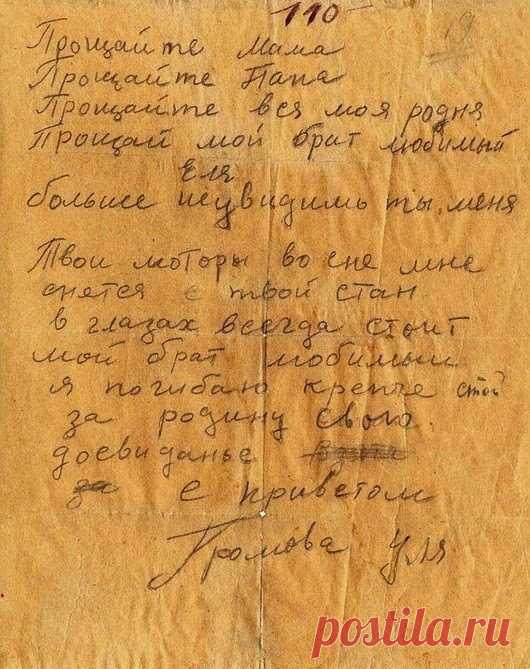 110
19
Прощайте Мама
Прощайте Папа
Прощайте вся моя родня
Прощай мой брат любимый
Еля
больше неувидишь ты меня
Твои моторы во сне мне
снятся и твой стан
в глазах всегда стоит
мой брат любимый
я погибаю крепче стой
за родину свою.
досвиданье
за
С приветом
Громова Уля
postila.ru